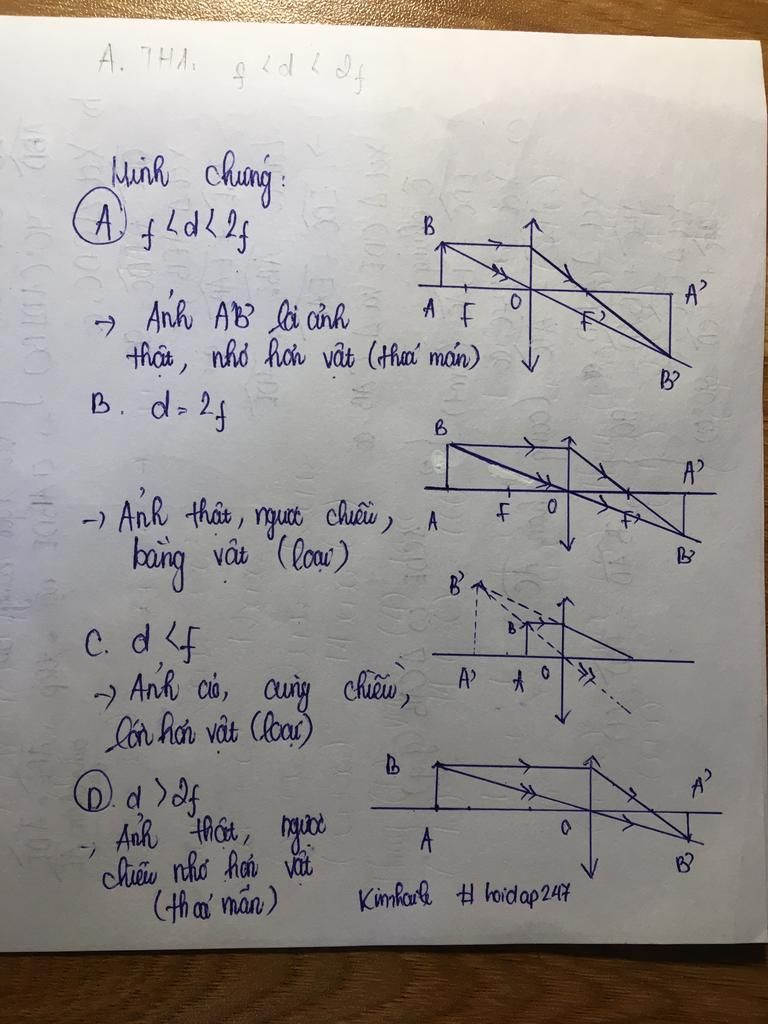 A. TH1: f < d < 2f
Minh chứng:
A. f < d < 2f
B
A
F
O
F'
A'
B'
→ Ảnh A'B' là ảnh
thật, nhỏ hơn vật (thoả mãn)
B. d = 2f
B
A
F
O
F'
A'
B'
→ Ảnh thật, ngược chiều,
bằng vật (loại)
C. d < f
B'
B
A'
A
O
→ Ảnh ảo, cùng chiều,
lớn hơn vật (loại)
D. d > 2f
B
A
O
A'
B'
→ Ảnh thật, ngược
chiều nhỏ hơn vật
(thoả mãn)
# hoidap247